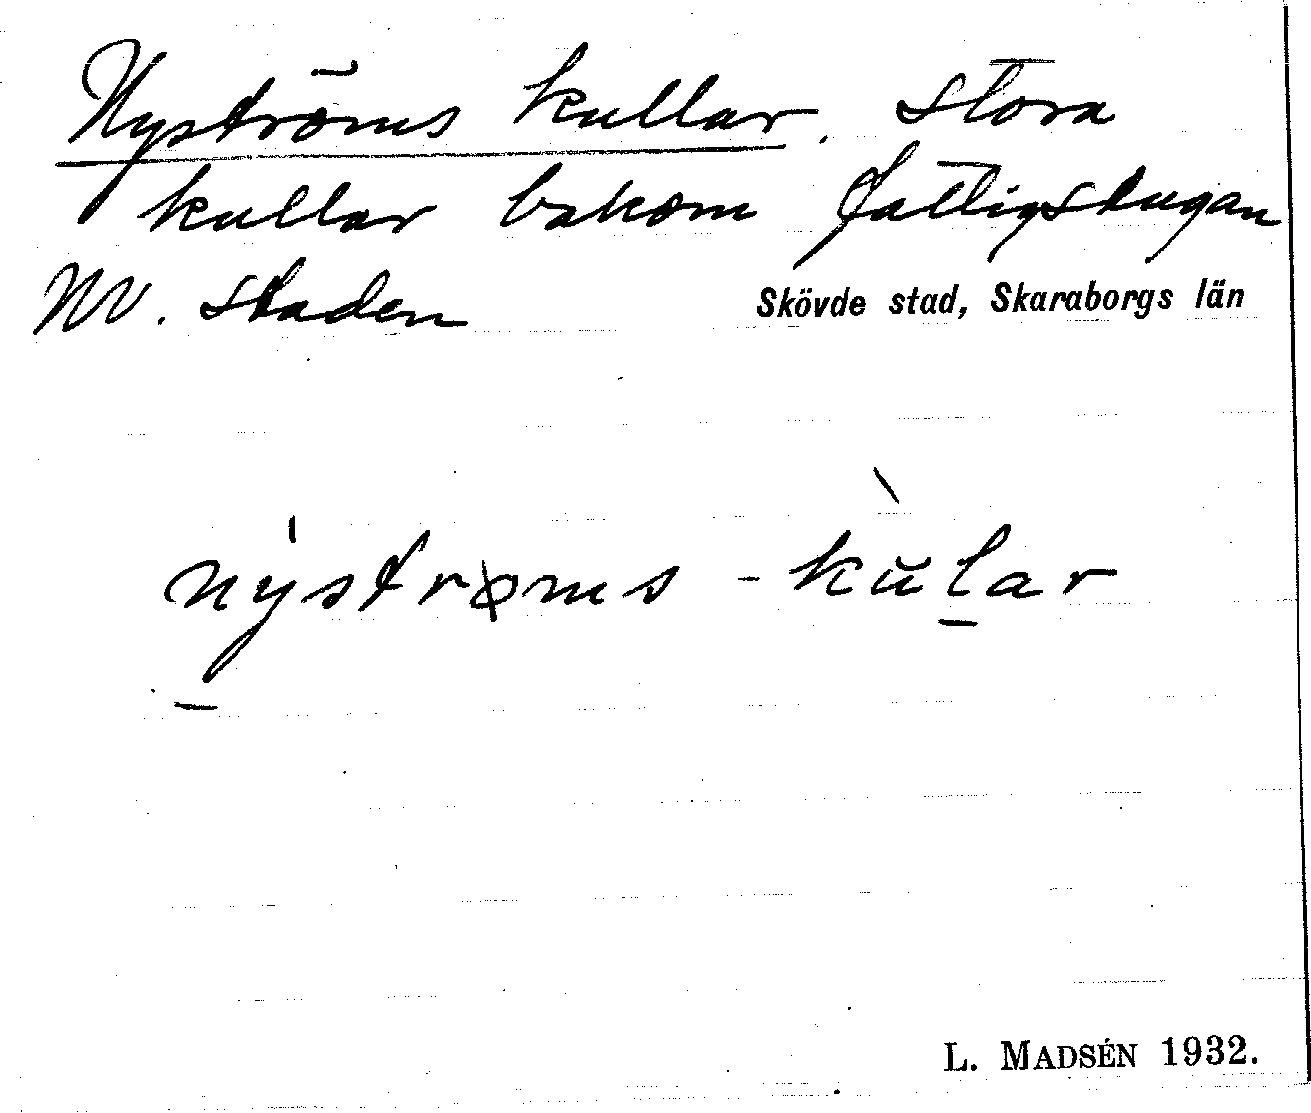 Nyströms kullar. Stora
kullar bakom fattigstugan
NV. staden
Skövde stad, Skaraborgs län
nystrøms - kŭlar
L. MADSÉN 1932.